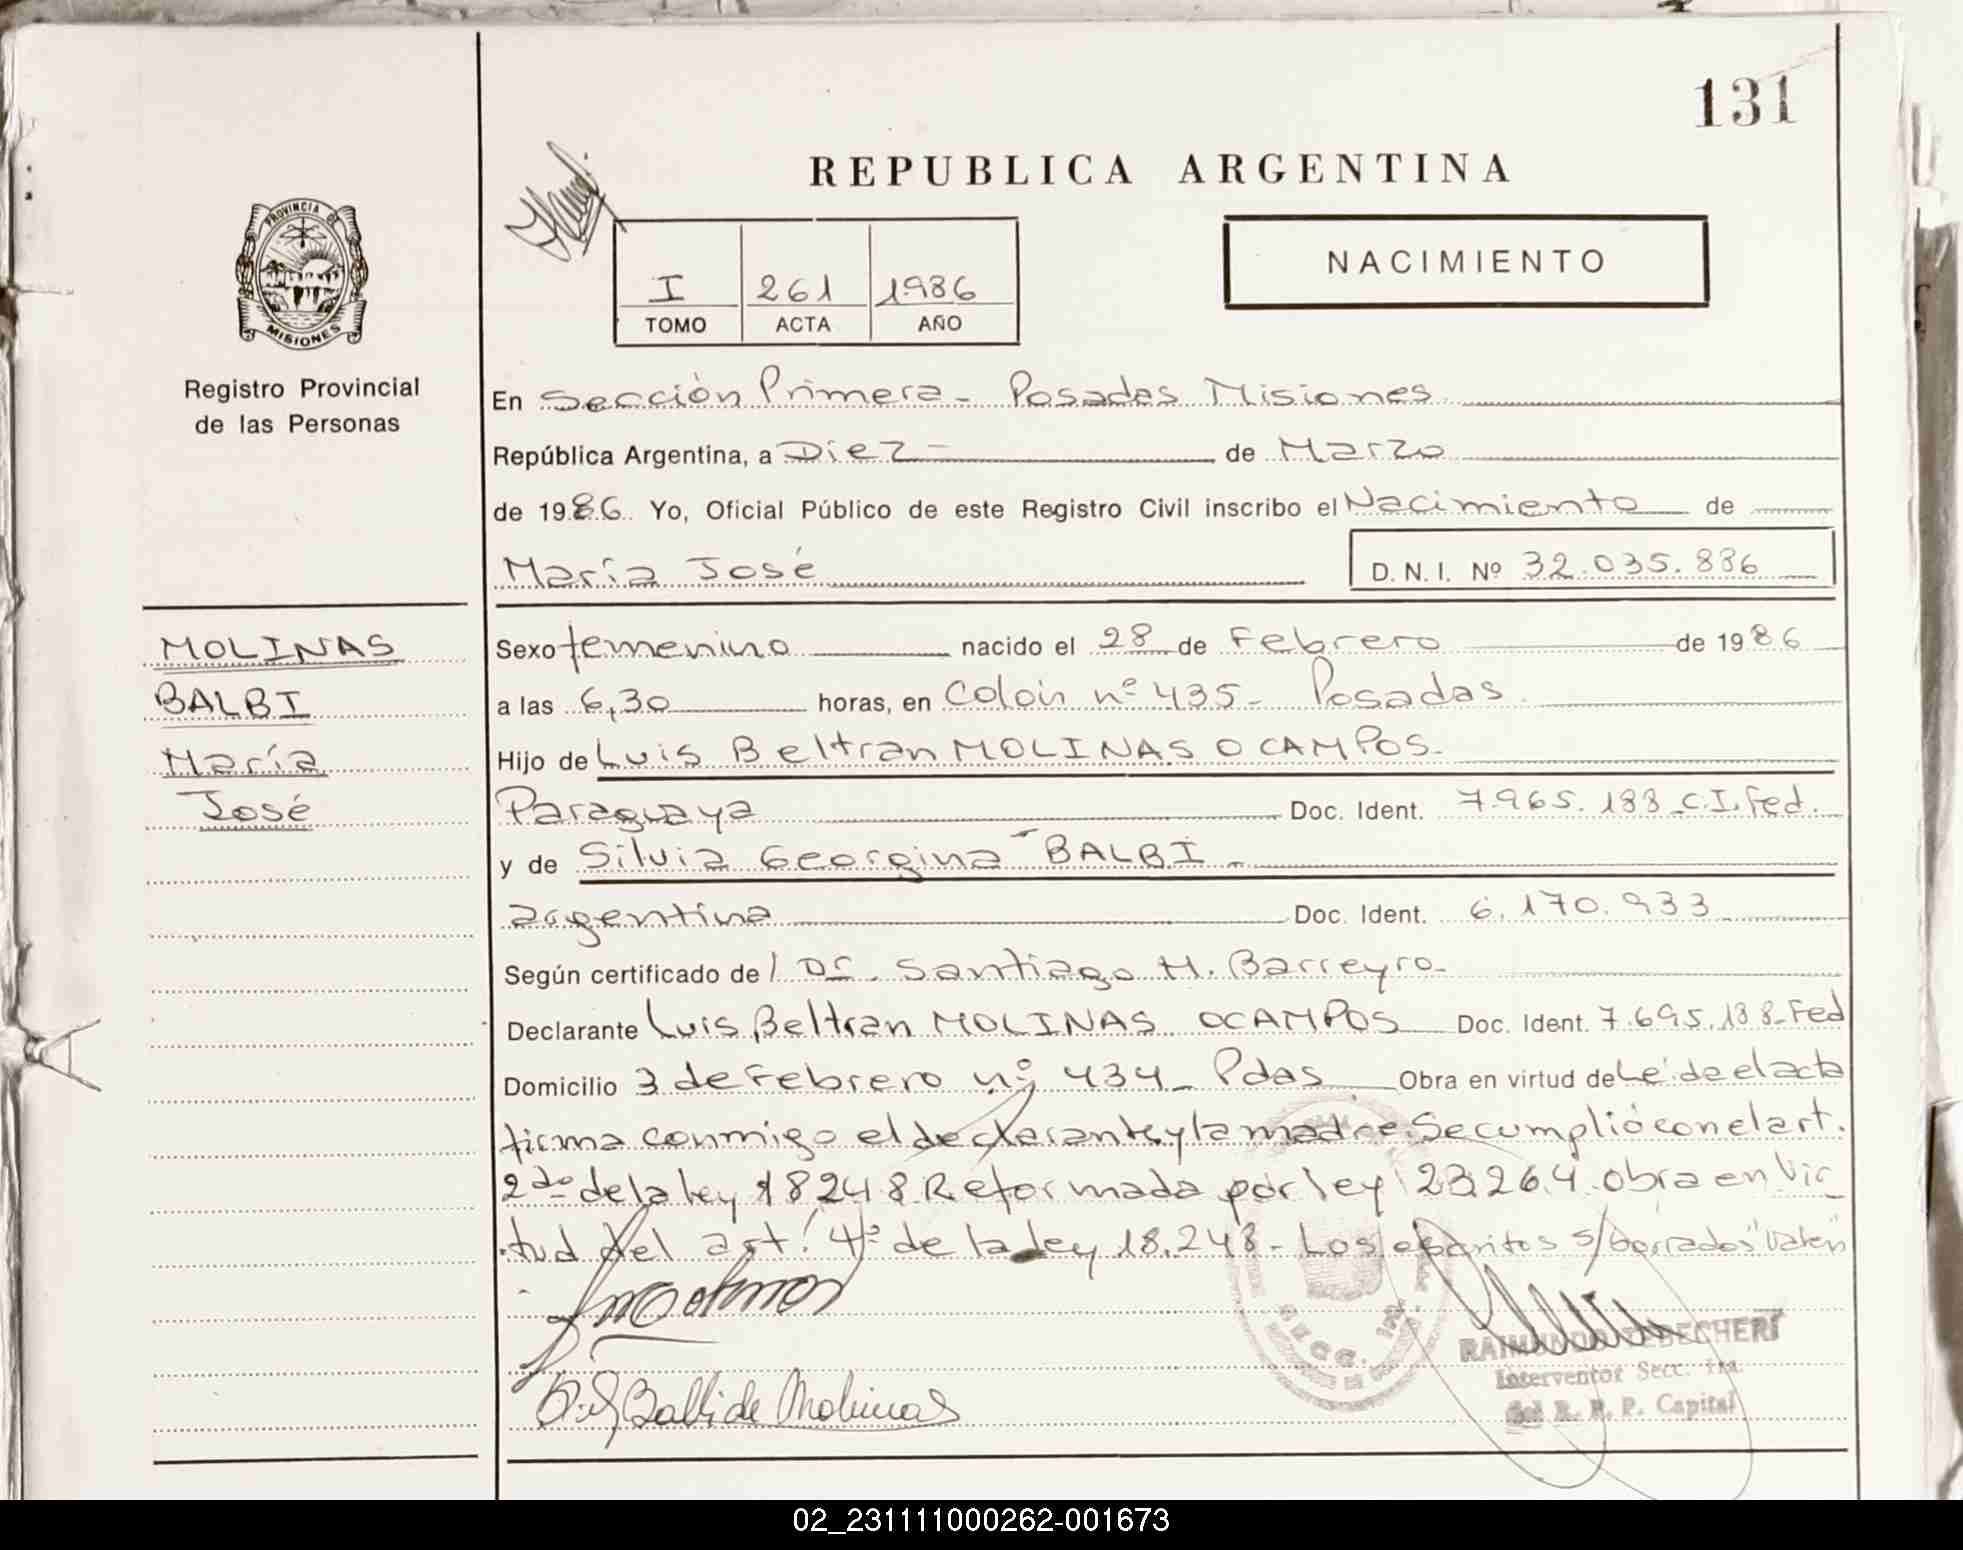 131
REPUBLICA ARGENTINA
PROVINCIA DE
MISIONES
Registro Provincial
de las Personas
I 261 1986
TOMO ACTA AÑO
NACIMIENTO
En Sección Primera - Posadas Misiones
República Argentina, a Diez - de Marzo
de 1986. Yo, Oficial Público de este Registro Civil inscribo el Nacimiento de
María José
D.N.I. Nº 32.035.886
MOLINAS
BALBI
María
José
Sexo femenino nacido el 28 de Febrero de 1986
a las 6,30 horas, en Colón nº 435 - Posadas
Hijo de Luis Beltran MOLINAS OCAMPOS -
Paraguaya Doc. Ident. 7.965.188 C.I. Fed.
y de Silvia Georgina BALBI -
argentina Doc. Ident. 6.170.933
Según certificado del Dr. Santiago H. Barreyro -
Declarante Luis Beltran MOLINAS OCAMPOS Doc. Ident. 7.695.188 - Fed
Domicilio 3 de Febrero nº 434 - Pdas Obra en virtud de Leída el acta
firma conmigo el declarante y la madre. Se cumplió con el art.
2do de la ley 18248 Reformada por ley 23.264. Obra en vir
tud del art. 4º de la ley 18.248 - Los escritos s/borrados "valen"
B. de Molinas
SECC. 1ra.
RAIMUNDO
Interventor Secc. 1ra.
del R. P. P. Capital
02_231111000262-001673